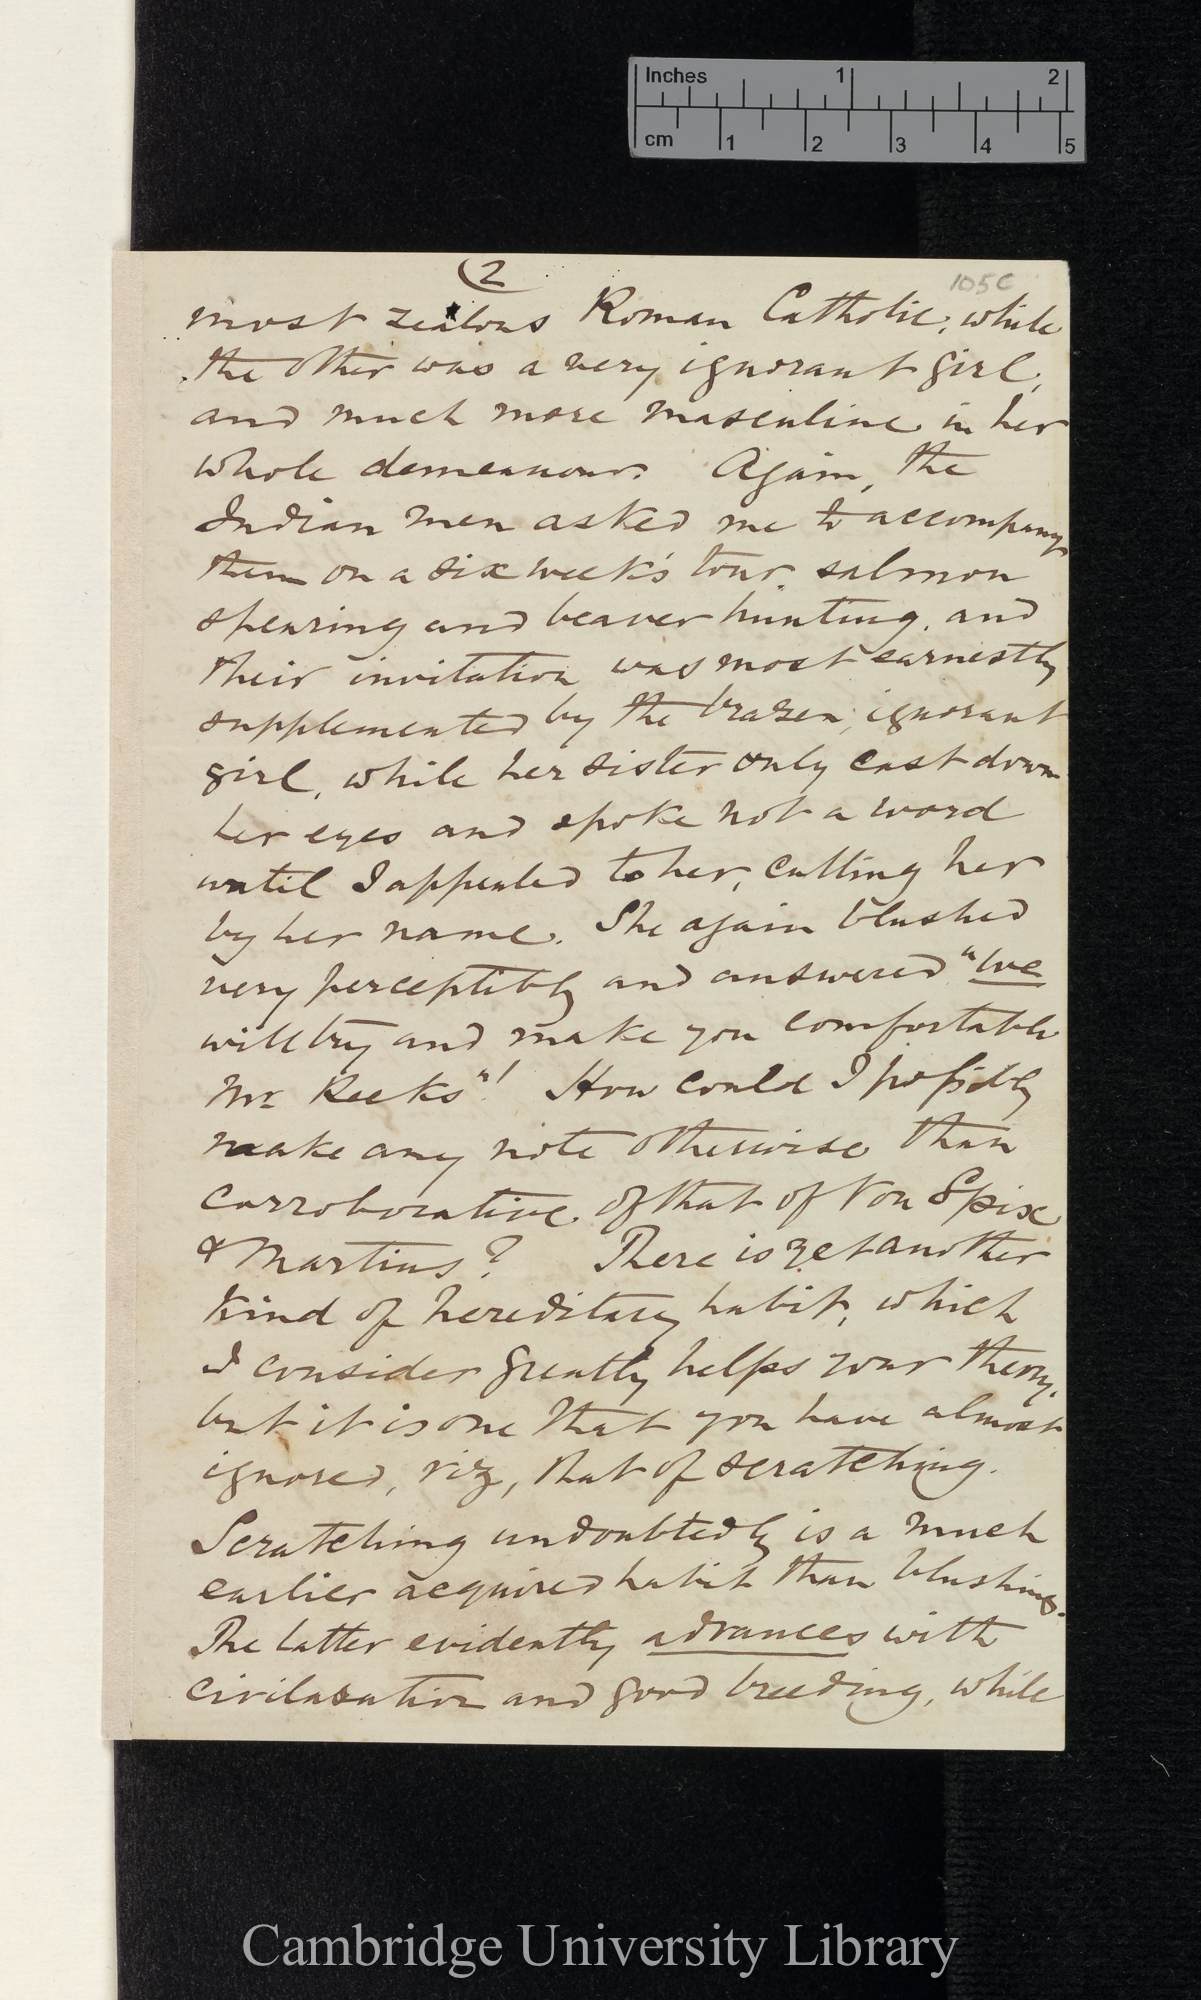 Inches 1 2
cm 1 2 3 4 5
(2
105c
most zealous Roman Catholic, while
the other was a very ignorant girl,
and much more masculine in her
whole demeanour. Again, the
Indian men asked me to accompany
them on a six week's tour, salmon
spearing and beaver hunting, and
their invitation was most earnestly
supplemented by the brazen, ignorant
girl, while her sister only cast down
her eyes and spoke not a word
until I appealed to her, calling her
by her name. She again blushed
very perceptibly and answered "We
will try and make you comfortable
Mr. Reeks"! How could I possibly
make any note otherwise than
corroborative of that of Von Spix
& Martius? There is yet another
kind of hereditary habit, which
I consider greatly helps your theory,
but it is one that you have almost
ignored, viz, that of scratching.
Scratching undoubtedly is a much
earlier acquired habit than blushing.
The latter evidently advances with
civilasation and good breeding, while
Cambridge University Library